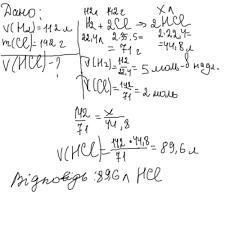 Дано:
V(H₂)=112 л
m(Cl)=142 г
V(HCl)-?
112л 142 г x л
H₂ + 2Cl → 2HCl
22,4л 2·35,5= 2·22,4=
=71г =44,8л
ν(H₂)=112/22,4=5 моль-в надл.
ν(Cl)=142/71=2 моль
142/71 = x/44,8
V(HCl)=142*44,8/71=89,6л
Відповідь: 89,6 л HCl